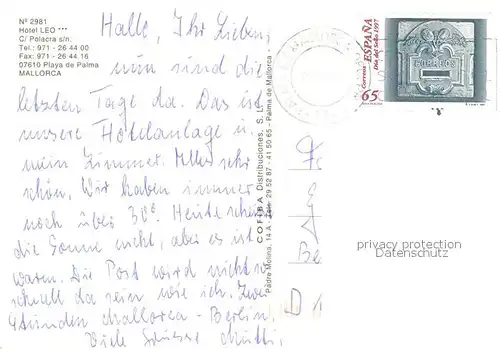 Nº 2981
Hotel LEO ***
C/ Polacra s/n.
Tel.: 971 - 26 44 00
Fax: 971 - 26 44 16
07610 Playa de Palma
MALLORCA
Hallo, Ihr Lieben,
nun sind die
letzten Tage da. Das ist
unsere Hotelanlage u.
mein Zimmer. Alles sehr
schön. Wir haben immer
noch über 30°. Heute schien
die Sonne nicht, aber es ist
warm. Die Post wird nicht so
schnell da sein wie ich. Zwei
Stunden Mallorca - Berlin.
Viele Grüsse Mutti
COFIBA Distribuciones, S. L.
Padre Molina, 14 A - Tels. 29 52 87 - 41 50 65 - Palma de Mallorca
Correos ESPAÑA
Día del Sello 1997
CORREOS
65
Be
D 1
privacy protection
Datenschutz